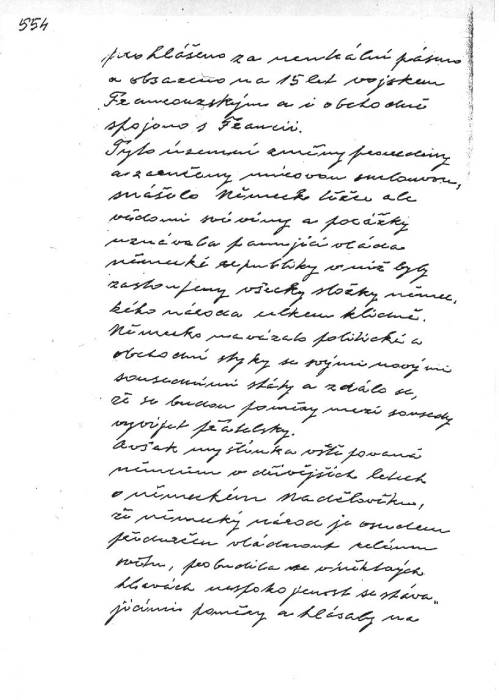 554
prohlášeno za neutrální pásmo
a obsazeno na 15 let vojskem
Francouzským a i obchodně
spojono s Francií.
Tyto územní změny provedeny
a zaručeny mírovou smlouvou,
snášelo Německo těžce ale
vědomi své viny a porážky
uznávala panující vláda
německé republiky v níž byly
zastoupeny všecky složky němec„
kého národa celkem klidně.
Německo navázalo politické a
obchodní styky se svými novými
sousedními státy a zdálo se,
že se budou poměry mezi sousedy
vyvíjet přátelsky.
Avšak myšlénka vště povaná
němcům v dřívějších letech
o německém Nadčlověku,
že německý národ je osudem
předurčen vládnout celému
světu, probudila se v některých
hlavách nespokojenost se stáva„
jícími poměry a hlásaly na